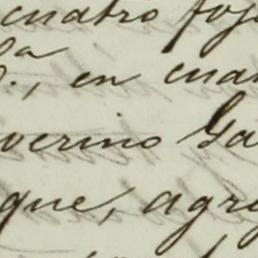 cuatro foj
en cua
verino Ga
que, agre